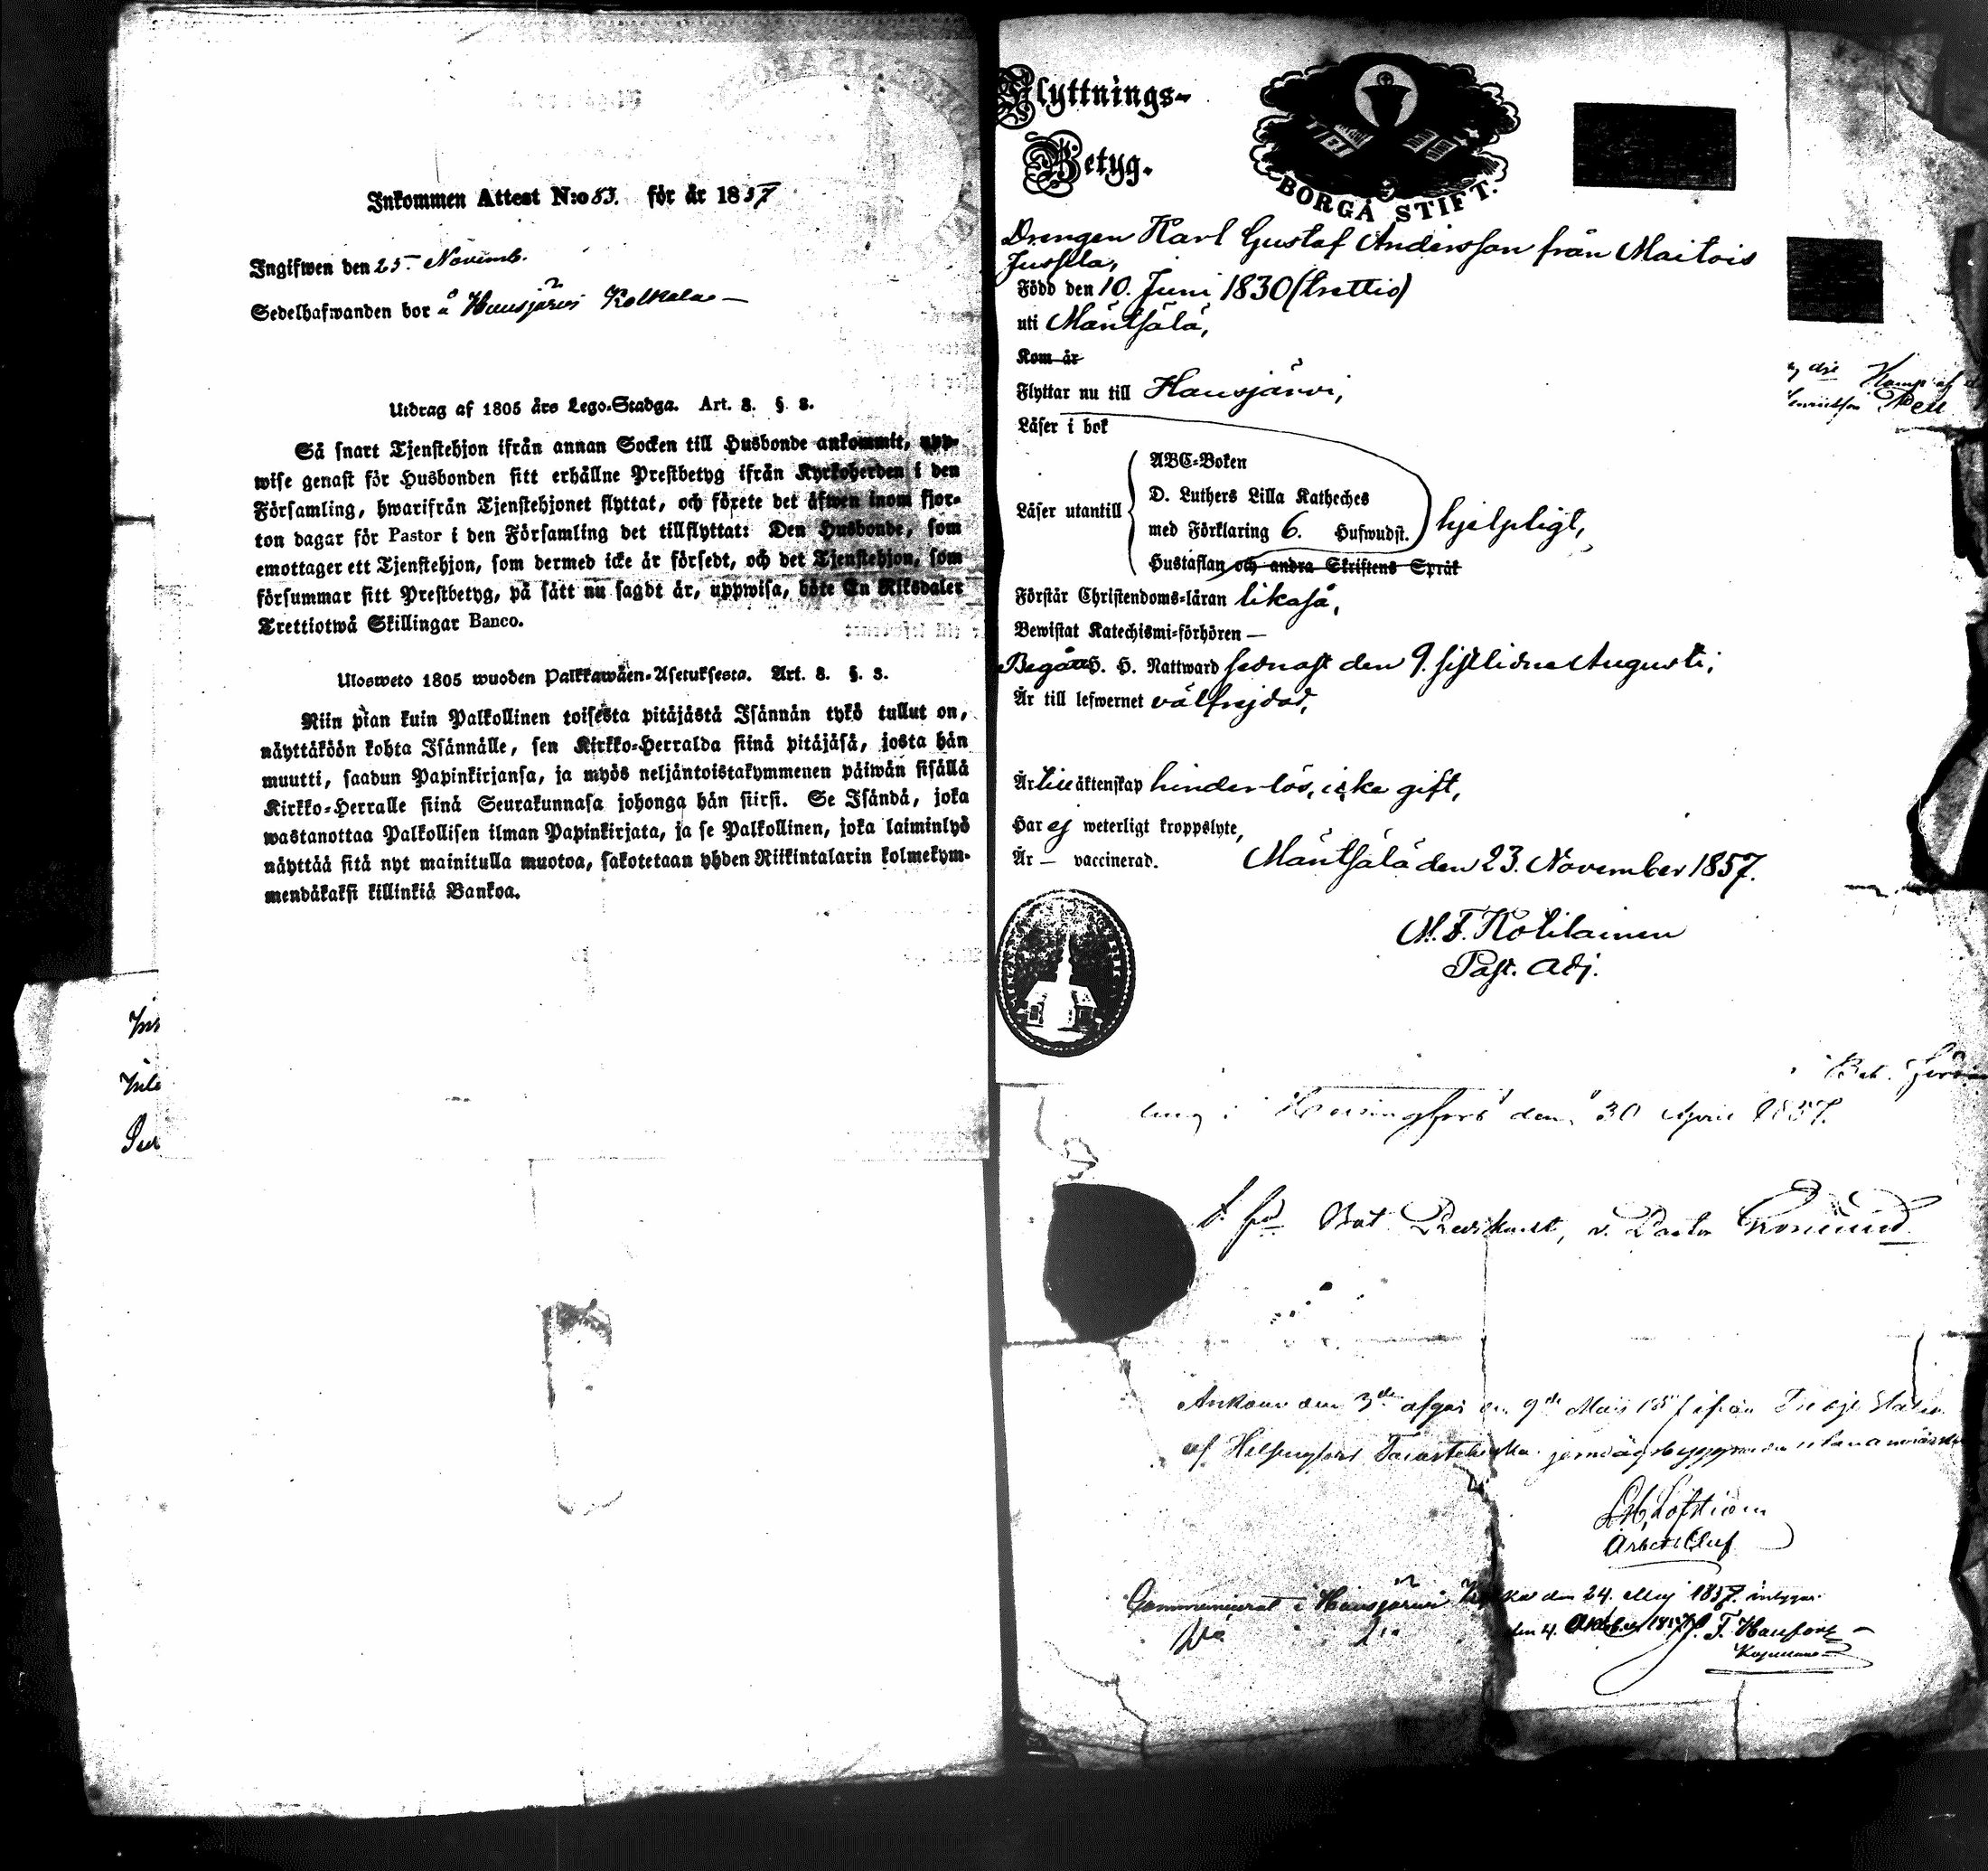 Inkommen Attest N:o 83. för år 1857
Ingifwen den 25. Novemb.
Sedelhafwanden bor å Hausjärvi Kolkala —
Utdrag af 1805 års Lego-Stadga. Art. 8. §. 8.
Så snart Tjenstehjon ifrån annan Socken till Husbonde ankommit, upp-
wise genast för Husbonden sitt erhållne Prestbetyg ifrån Kyrkoherden i den
Församling, hwarifrån Tjenstehjonet flyttat, och förete det äfwen inom fjor-
ton dagar för Pastor i den Församling det tillflyttat: Den Husbonde, som
emottager ett Tjenstehjon, som dermed icke är försedt, och det Tjenstehjon, som
försummar sitt Prestbetyg, på sätt nu sagdt är, uppwisa, böte En Riksdaler
Trettiotwå Skillingar Banco.
Ulosweto 1805 wuoden Palkkawäen-Asetuksesta. Art. 8. §. 8.
Niin pian kuin Palkollinen toisesta pitäjästä Isännän tykö tullut on,
näyttäköön kohta Isännälle, sen Kirkko-Herralda siinä pitäjäsä, josta hän
muutti, saadun Papinkirjansa, ja myös neljäntoistakymmenen päiwän sisällä
Kirkko-Herralle siinä Seurakunnasa johonga hän siirsi. Se Isändä, joka
wastanottaa Palkollisen ilman Papinkirjata, ja se Palkollinen, joka laiminlyö
näyttää sitä nyt mainitulla muotoa, sakotetaan yhden Riikintalarin kolmekym-
mendäkaksi killinkiä Bankoa.
Flyttnings-
Betyg.
BORGÅ STIFT.
Drengen Karl Gustaf Andersson från Maitois
Jussila,
Född den 10. Juni 1830 (trettio)
uti Mäntsälä,
Kom år
Flyttar nu till Hausjärvi,
Läser i bok
Läser utantill
ABC-Boken
D. Luthers Lilla Katheches
med Förklaring 6. Hufwudst.
Hustaflan och andra Skriftens Språk
hjelpligt,
Förstår Christendoms-läran likaså,
Bewistat Katechismi-förhören —
Begått H. H. Nattward sednast den 9. sistlidne Augusti;
Är till lefwernet välfrejdad,
Är till äktenskap hinderlös, icke gift,
Har ej weterligt kroppslyte,
Är — vaccinerad.
Mäntsälä den 23. November 1857.
M. F. Kotilainen
Past. Adj.
den 30 April 1857.
Bat. Predikant, v. Pastor
Ankom den 3de afgår den 9de Maj 1857 ifrån Tredje
af Helsingfors Tavastehuska jernvägsbyggnaden utan anmärkn
Löfström
Arbets Chef
Communicerat i Hausjärvi den 24. Maj 1857. intygar
den 4. October 1857